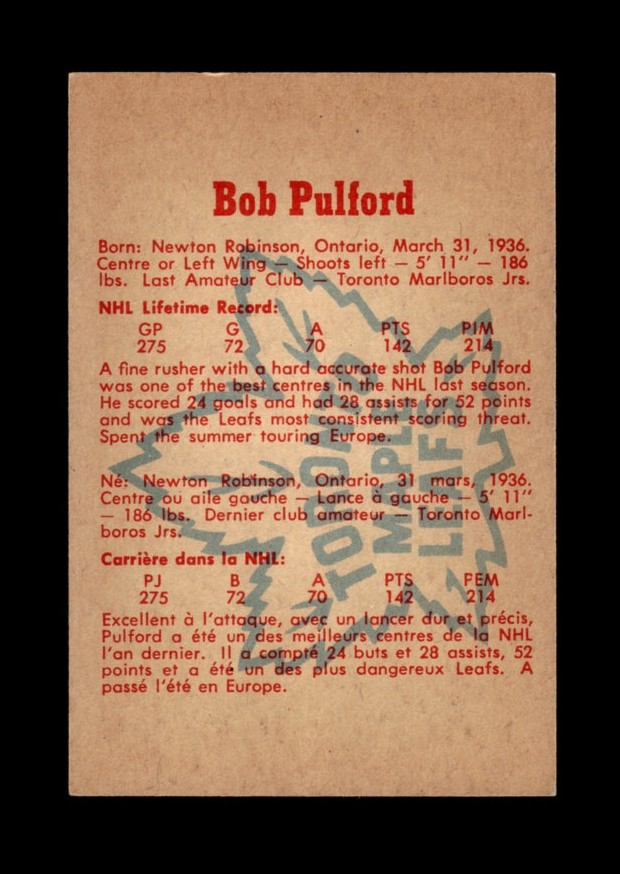 Bob Pulford
Born: Newton Robinson, Ontario, March 31, 1936.
Centre or Left Wing — Shoots left — 5' 11" — 186
lbs. Last Amateur Club — Toronto Marlboros Jrs.
NHL Lifetime Record:
GP G A PTS PIM
275 72 70 142 214
A fine rusher with a hard accurate shot Bob Pulford
was one of the best centres in the NHL last season.
He scored 24 goals and had 28 assists for 52 points
and was the Leafs most consistent scoring threat.
Spent the summer touring Europe.
Né: Newton Robinson, Ontario, 31 mars, 1936.
Centre ou aile gauche — Lance à gauche — 5' 11"
— 186 lbs. Dernier club amateur — Toronto Marl-
boros Jrs.
Carrière dans la NHL:
PJ B A PTS PEM
275 72 70 142 214
Excellent à l'attaque, avec un lancer dur et précis,
Pulford a été un des meilleurs centres de la NHL
l'an dernier. Il a compté 24 buts et 28 assists, 52
points et a été un des plus dangereux Leafs. A
passé l'été en Europe.
TORONTO
MAPLE
LEAFS